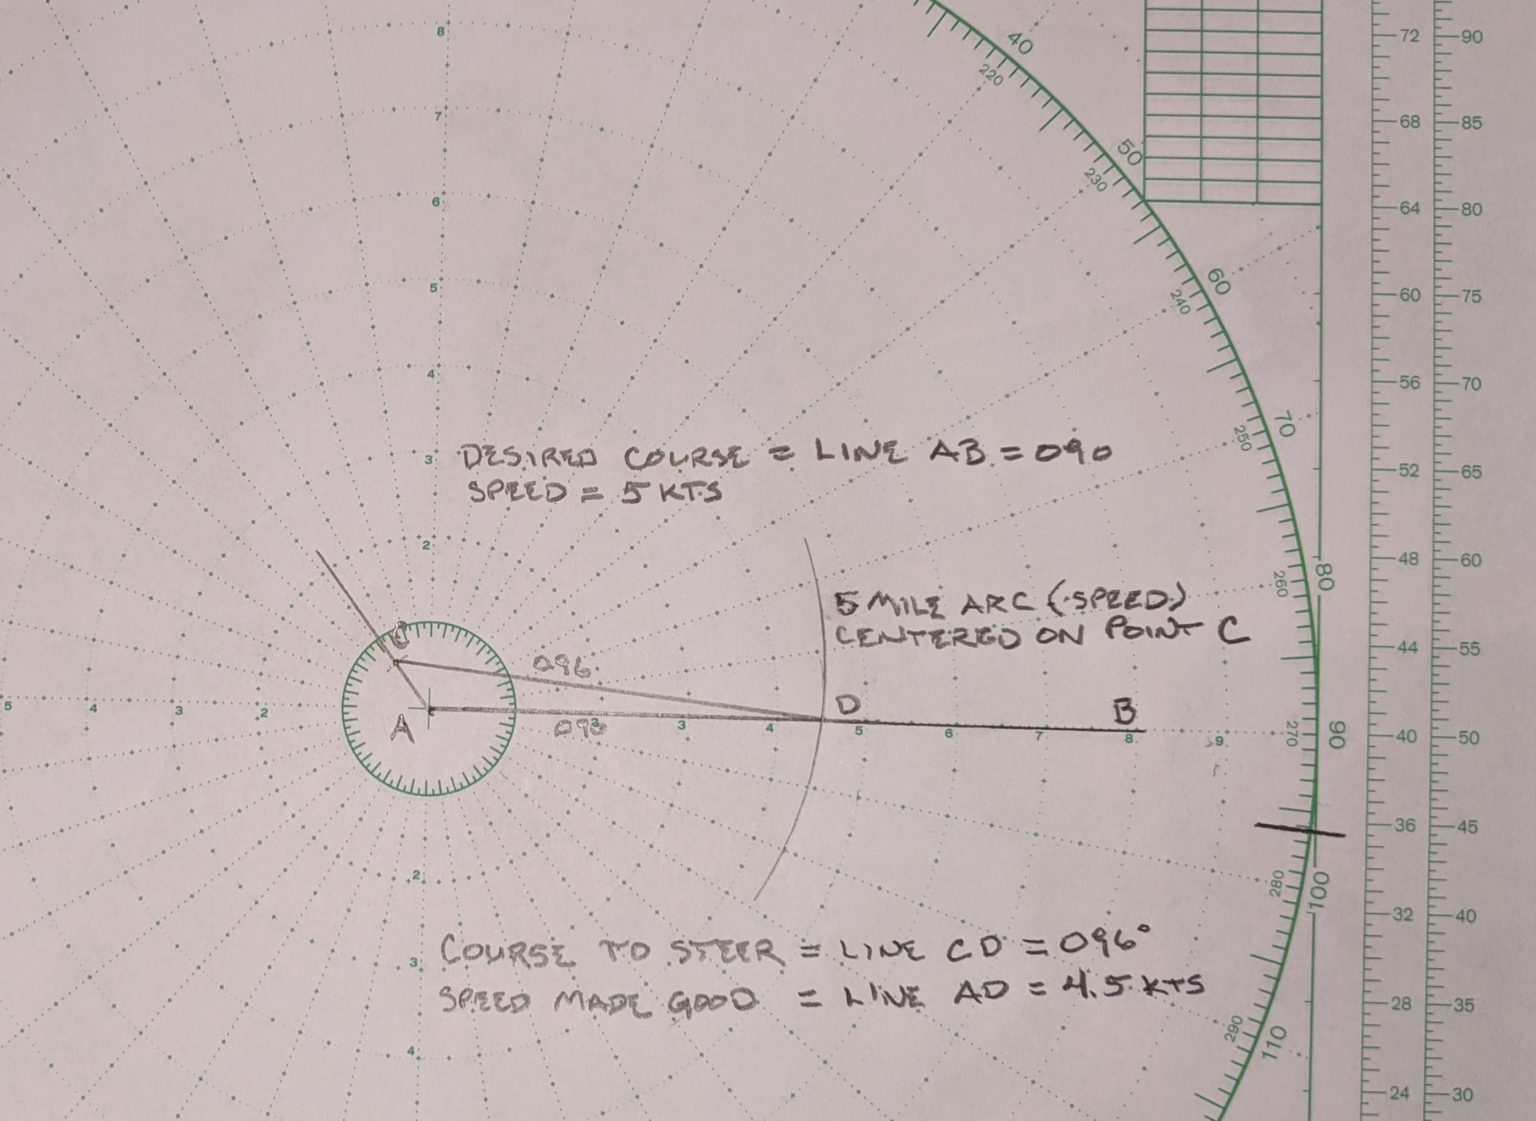 40
220
50
230
60
240
70
250
80
260
90
270
100
280
110
290
8
7
6
5
4
3
2
DESIRED COURSE = LINE AB = 090
SPEED = 5 KTS
5 MILE ARC (SPEED)
CENTERED ON POINT C
C
096
A
090
D
B
5 4 3 2
3 4 5 6 7 8 9
2
3
4
COURSE TO STEER = LINE CD = 096°
SPEED MADE GOOD = LINE AD = 4.5 KTS
72 90
68 85
64 80
60 75
56 70
52 65
48 60
44 55
40 50
36 45
32 40
28 35
24 30